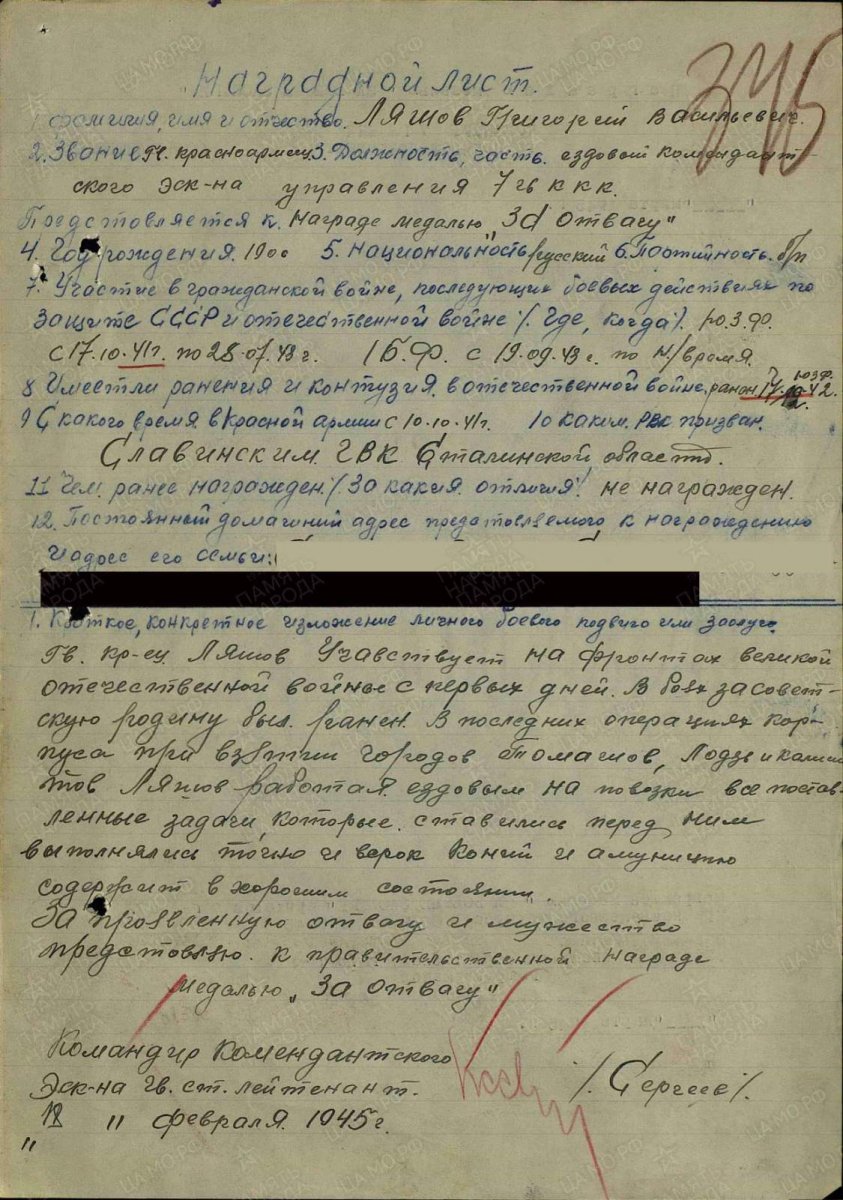 345
Наградной лист.
1. фамилия, имя и отчество. Ляшов Григорий Васильевич.
2. Звание Гв. красноармеец 3. Должность, часть. ездовой комендант-
ского эск-на управления 7 гв ккк.
Предстовляется к. награде медалью „За отвагу"
4. Год рождения. 1900 5. Национальность русский 6. Партийность. б/п
7. Участие в гражданской войне, последующих боевых действиях по
защите СССР и отечественной войне /. Где, когда/. Ю.З.Ф.
с 17.10.41г. по 28.07.43 г. 1 Б.Ф. с 19.09.43 г. по н/время.
8 Имеетли ранения и контузия. в отечественной войне. ранен 17. 42. ЮЗФ.
9 С какого время в Красной армии с 10.10.41г. 10 каким. РВК призван.
Славинским. ГВК Сталинской области.
11 Чем. ранее награжден /. За какия. отличия/. не награжден.
12. Постоянный домашний адрес предстовляемого к награждению
и адрес его семьи:
1. Краткое, конкретное изложение личного боевого подвига или заслуг.
Гв. кр-ец Ляшов Учавствует на фронтах великой
отечественной войны с первых дней. В боях за совет-
скую родину был. ранен. В последних операциях кор-
пуса при взятии городов Томашов, Лодзь и
тов Ляшов работая. ездовым на повозки все постав-
ленные задачи, которые. ставились перед ним
выполнялись точно и Коний и амуницию
содержит в хорошим состоянии.
За проявленную отвагу и мужество
предстовляю. к правительственной награде
медалью „За отвагу"
Командир Комендантского
Эск-на гв. ст. лейтенант. /. Сергеев /.
18 " февраля. 1945 г.
"